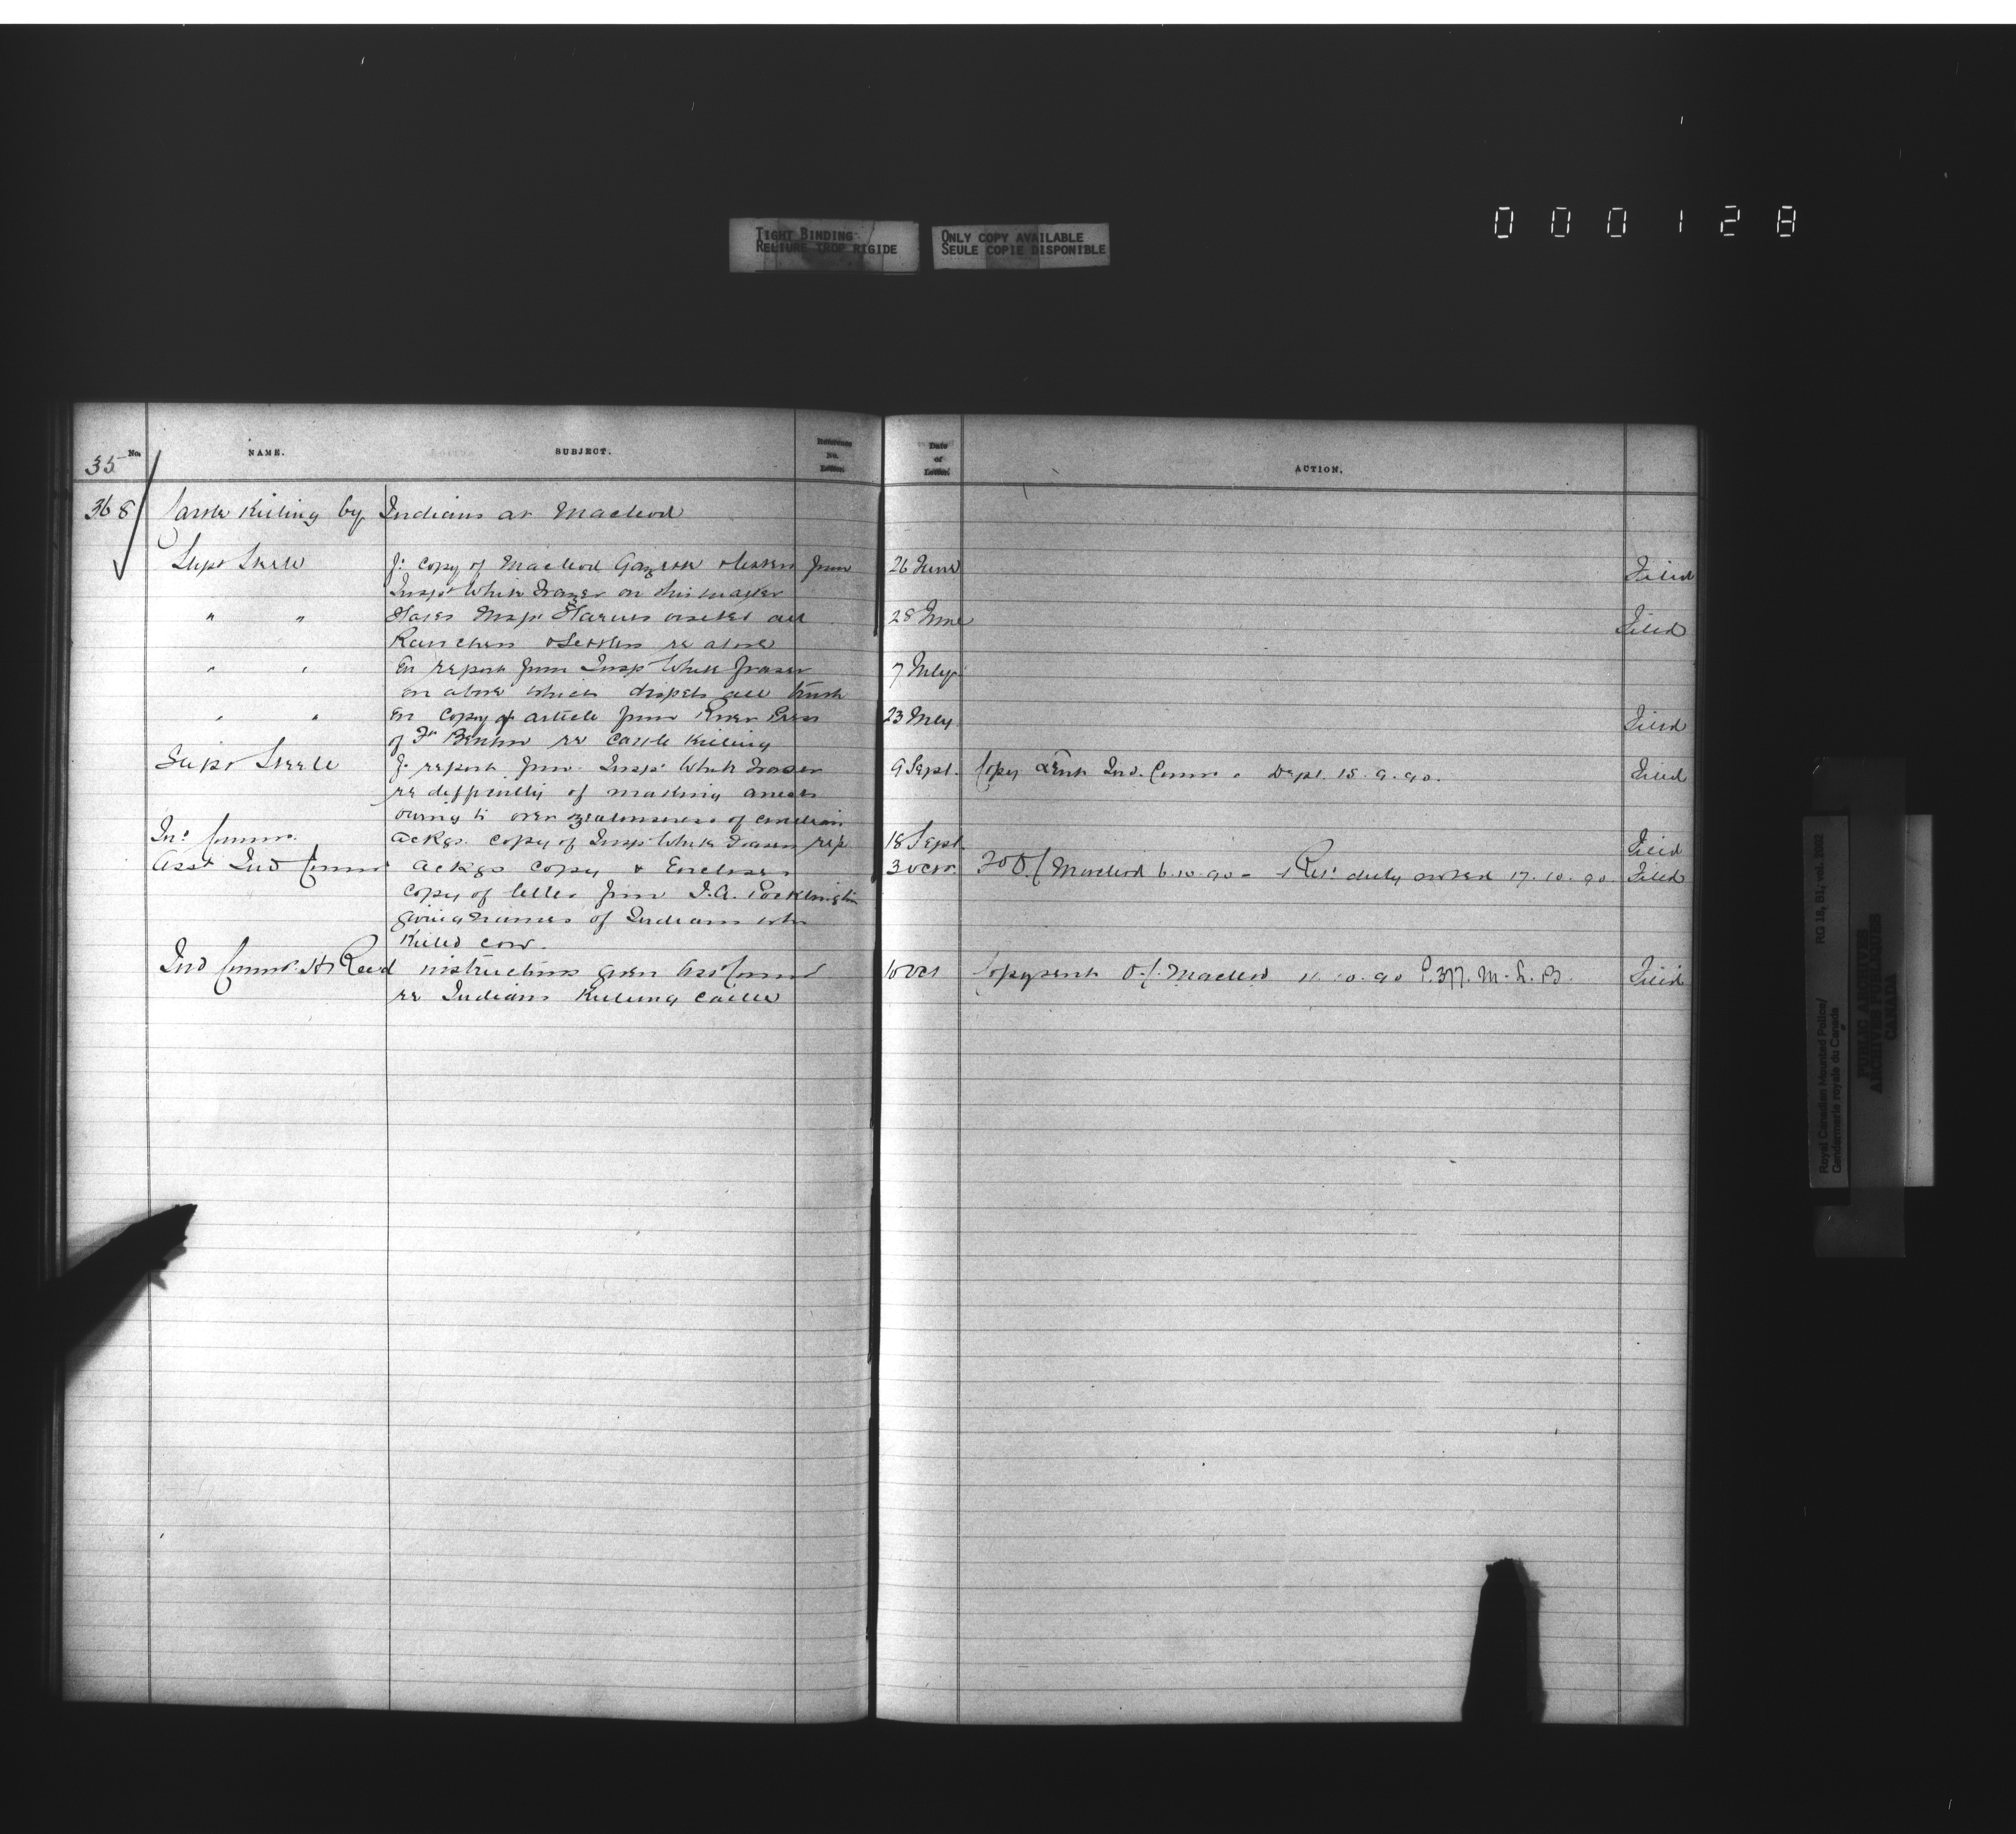 000128
TIGHT BINDING
RELIURE TROP RIGIDE
ONLY COPY AVAILABLE
SEULE COPIE DISPONIBLE
No. NAME. SUBJECT. Reference No. Letter. Date of Letter. ACTION.
35
368 Cattle Killing by Indians at Macleod
Supt Steele f. copy of Macleod Gazette & letter from 26 June Filed
Inspr White Fraser on this matter
" " States visited all 28 June Filed
Ranchers & Settlers re above
" " En report from Insp White Fraser 7 July
on above which dispels all truth
" " En copy of article from River Press 23 July Filed
of Ft Benton re Cattle Killing
Supt Steele f. report from Inspr White Fraser 9 Sept. Copy sent Ind. Commr. Dept. 15.9.90. Filed
re difficulty of making arrests
owing to over zealousness of
Commr. ackgs. copy of Inspr White Fraser rep 18 Sept. Filed
Asst Ind Commr ackgs copy & Encloses 3 Oct. Macleod 6.10.90 - Ret. duly noted 17.10.90 Filed
copy of letter from I.A. Pocklington
giving names of Indians who
killed cow.
Ind Commr. H Reed instructions given Asst Commr 10 Oct Copy sent O.C. Macleod 11.10.90 P.377. M.L.B. Filed
re Indians killing cattle
Royal Canadian Mounted Police/
Gendarmerie royale du Canada
RG 18, B1, vol. 2002
PUBLIC ARCHIVES
ARCHIVES PUBLIQUES
CANADA